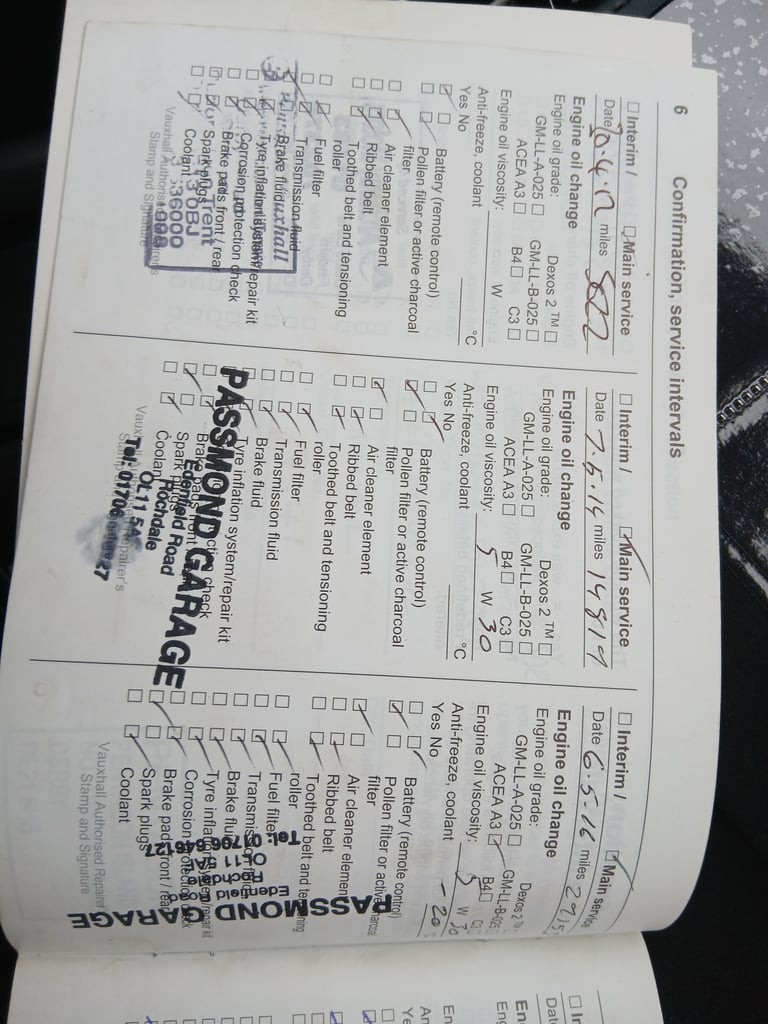 6
Confirmation, service intervals
☐ Interim / ☑ Main service
Date 20.4.12 miles
Engine oil change
Engine oil grade: Dexos 2 ™ ☐
GM-LL-A-025 ☐ GM-LL-B-025 ☐
ACEA A3 ☐ B4 ☐ C3 ☐
Engine oil viscosity: W
Anti-freeze, coolant °C
Yes No
Battery (remote control)
Pollen filter or active charcoal
filter
Air cleaner element
Ribbed belt
Toothed belt and tensioning
roller
Fuel filter
Transmission fluid
Brake fluid
Tyre inflation system/repair kit
Corrosion protection check
Brake pads front / rear
Spark plugs
Coolant
Vauxhall Authorised Repairer's
Stamp and Signature
Vauxhall
Trent
3 0BJ
36000
☐ Interim / ☑ Main service
Date 7.5.14 miles 14819
Engine oil change
Engine oil grade: Dexos 2 ™ ☐
GM-LL-A-025 ☐ GM-LL-B-025 ☐
ACEA A3 ☐ B4 ☐ C3 ☐
Engine oil viscosity: 5 W 30
Anti-freeze, coolant °C
Yes No
Battery (remote control)
Pollen filter or active charcoal
filter
Air cleaner element
Ribbed belt
Toothed belt and tensioning
roller
Fuel filter
Transmission fluid
Brake fluid
Tyre inflation system/repair kit
Corrosion protection check
Brake pads front
Spark plugs
Coolant
Vauxhall Authorised Repairer's
Stamp
PASSMOND GARAGE
Edenfield Road
Rochdale
OL11 5A
Tel: 01706 27
☐ Interim / ☑ Main service
Date 6.5.16 miles
Engine oil change
Engine oil grade: Dexos 2 ™
GM-LL-A-025 ☐ GM-LL-B-025 ☐
ACEA A3 ☑ B4 ☐ C3 ☐
Engine oil viscosity: 5 W 30
Anti-freeze, coolant -20
Yes No
Battery (remote control)
Pollen filter or active charcoal
filter
Air cleaner element
Ribbed belt
Toothed belt and tensioning
roller
Fuel filter
Transmission fluid
Brake fluid
Tyre inflation system/repair kit
Corrosion protection check
Brake pads front / rear
Spark plugs
Coolant
Vauxhall Authorised Repairer
Stamp and Signature
PASSMOND GARAGE
Tel: 01706 64